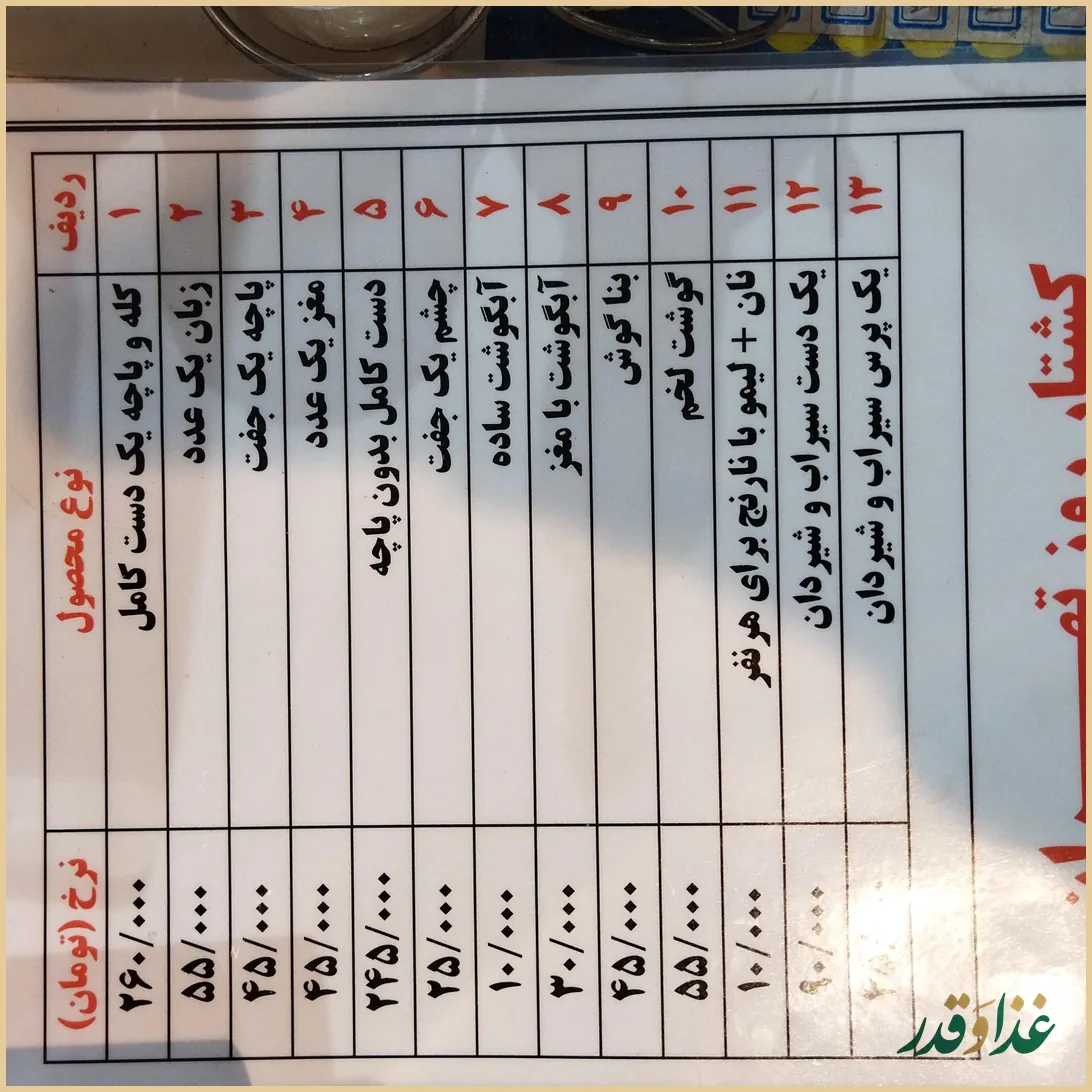 کشتار روز
ردیف نوع محصول نرخ (تومان)
۱ کله و پاچه یک دست کامل ۲۶۰/۰۰۰
۲ زبان یک عدد ۵۵/۰۰۰
۳ پاچه یک جفت ۴۵/۰۰۰
۴ مغز یک عدد ۴۵/۰۰۰
۵ دست کامل بدون پاچه ۲۴۵/۰۰۰
۶ چشم یک جفت ۲۵/۰۰۰
۷ آبگوشت ساده ۱۰/۰۰۰
۸ آبگوشت با مغز ۳۰/۰۰۰
۹ بنا گوش ۴۵/۰۰۰
۱۰ گوشت لخم ۵۵/۰۰۰
۱۱ نان + لیمو با نارنج برای هرنفر ۱۰/۰۰۰
۱۲ یک دست سیراب و شیردان ۹۰/۰۰۰
۱۳ یک پرس سیراب و شیردان
غذا و قدر